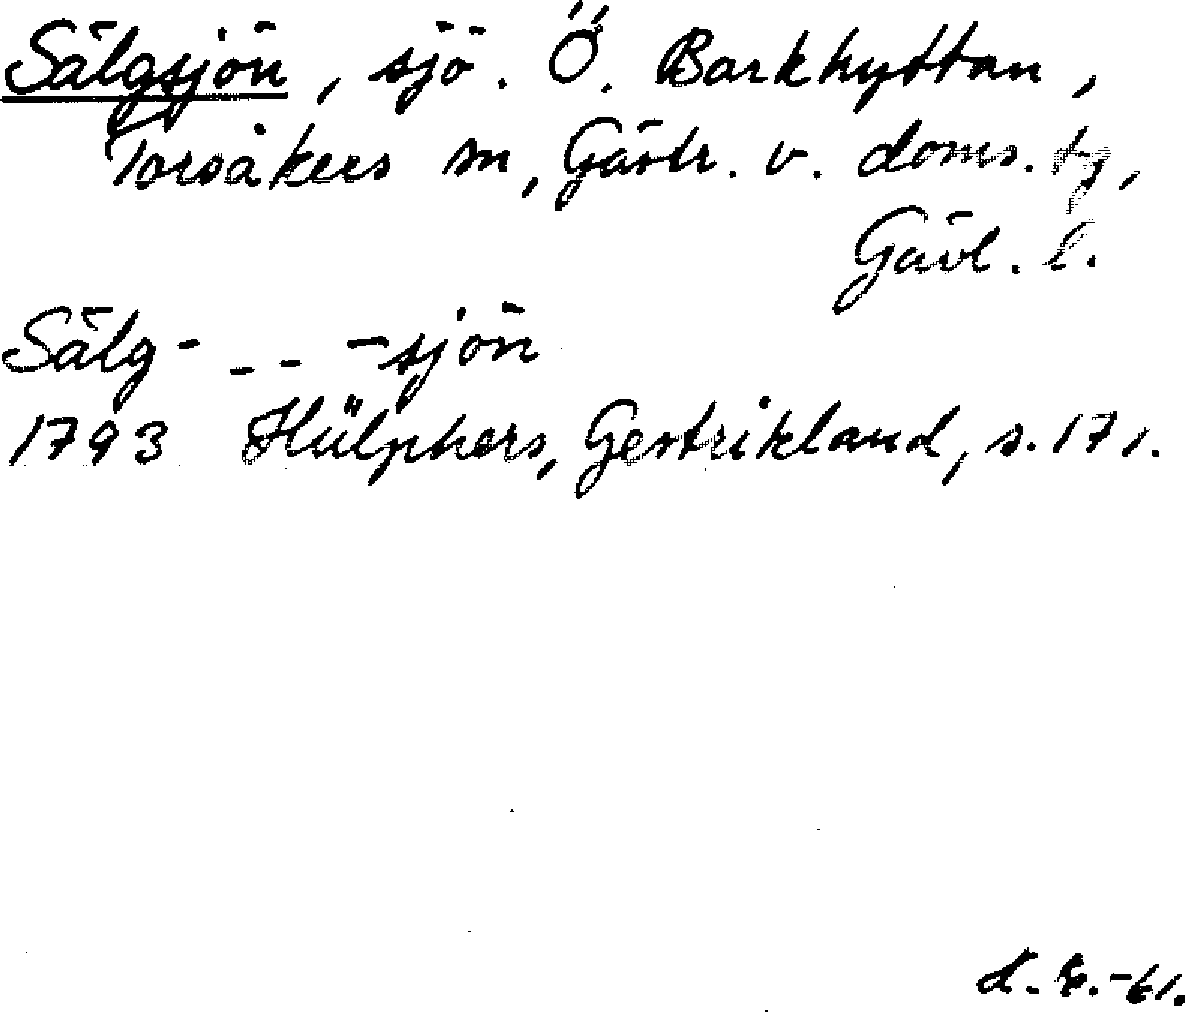 Sälgsjön, sjö. Ö. Barkhyttan,
Torsåkers sn, Gästr. v. doms. tg,
Gävl. l.
Sälg- -- -sjön
1793 Hülphers, Gestrikland, s. 171.
-61.